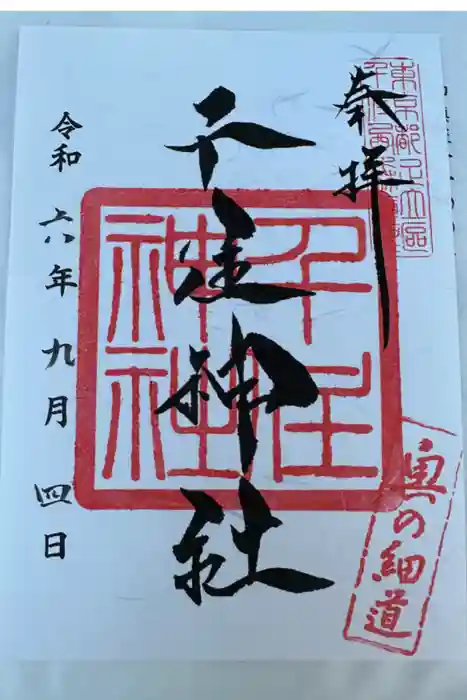 奉拝
東京都足立区
千住神社
千住
神社
奥の細道
令和六年九月四日